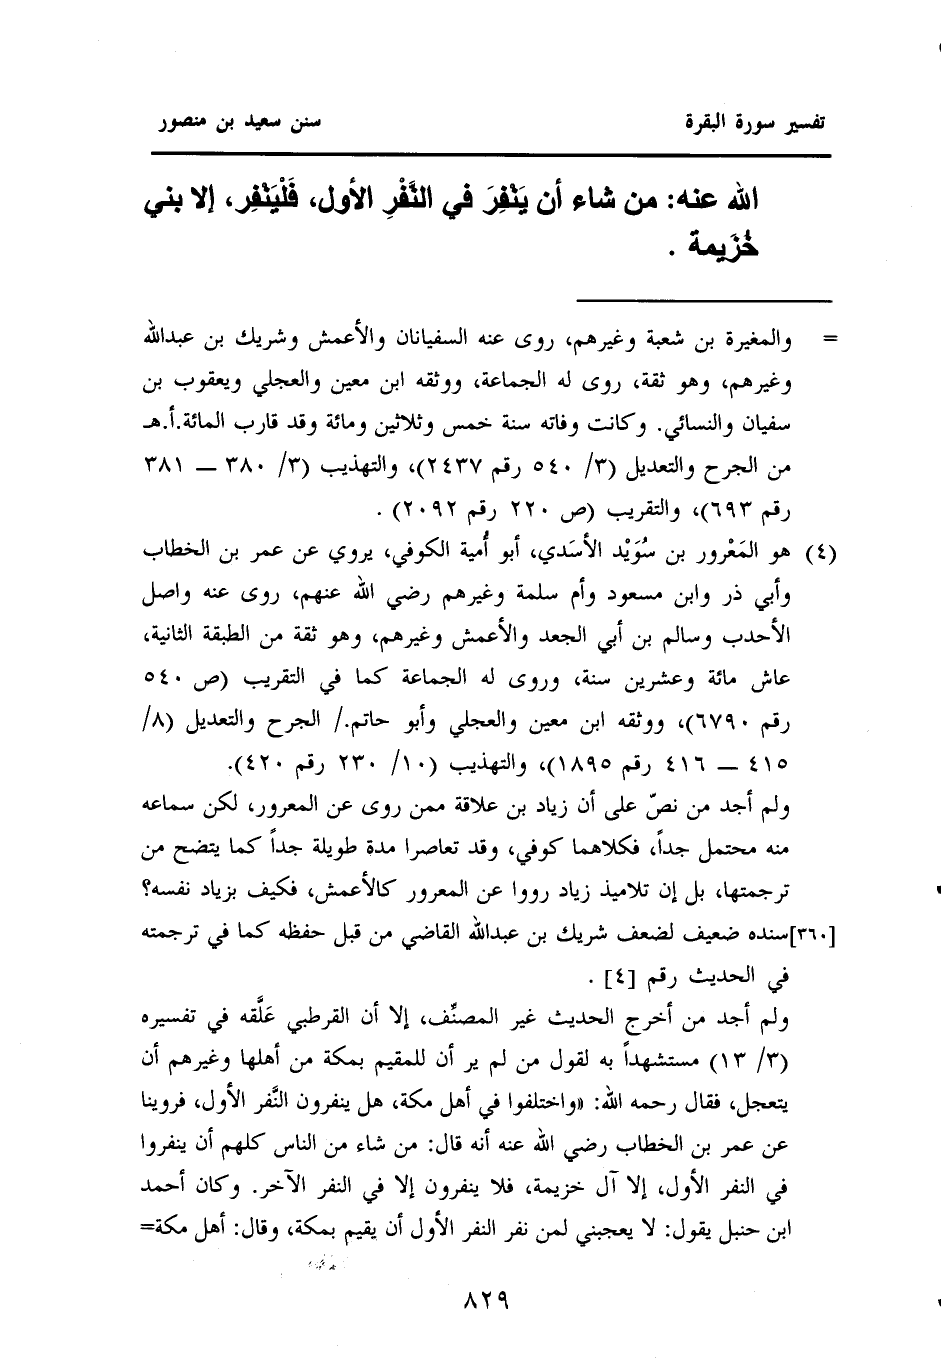 تفسير سورة البقرة
سنن سعيد بن منصور
الله عنه: من شاء أن يَنْفِرَ في النَّفْرِ الأول، فَلْيَنْفِر، إلا بني
خُزَيمة .
= والمغيرة بن شعبة وغيرهم، روى عنه السفيانان والأعمش وشريك بن عبدالله
وغيرهم، وهو ثقة، روى له الجماعة، ووثقه ابن معين والعجلي ويعقوب بن
سفيان والنسائي. وكانت وفاته سنة خمس وثلاثين ومائة وقد قارب المائة.أ.هـ
من الجرح والتعديل (٣/ ٥٤٠ رقم ٢٤٣٧)، والتهذيب (٣/ ٣٨٠ ــ ٣٨١
رقم ٦٩٣)، والتقريب (ص ٢٢٠ رقم ٢٠٩٢) .
(٤) هو المَعْرور بن سُوَيْد الأسَدي، أبو أُمية الكوفي، يروي عن عمر بن الخطاب
وأبي ذر وابن مسعود وأم سلمة وغيرهم رضي الله عنهم، روى عنه واصل
الأحدب وسالم بن أبي الجعد والأعمش وغيرهم، وهو ثقة من الطبقة الثانية،
عاش مائة وعشرين سنة، وروى له الجماعة كما في التقريب (ص ٥٤٠
رقم ٦٧٩٠)، ووثقه ابن معين والعجلي وأبو حاتم./ الجرح والتعديل (٨/
٤١٥ ــ ٤١٦ رقم ١٨٩٥)، والتهذيب (١٠/ ٢٣٠ رقم ٤٢٠).
ولم أجد من نصّ على أن زياد بن علاقة ممن روى عن المعرور، لكن سماعه
منه محتمل جداً، فكلاهما كوفي، وقد تعاصرا مدة طويلة جداً كما يتضح من
ترجمتها، بل إن تلاميذ زياد رووا عن المعرور كالأعمش، فكيف بزياد نفسه؟
[٣٦٠]سنده ضعيف لضعف شريك بن عبدالله القاضي من قبل حفظه كما في ترجمته
في الحديث رقم [٤] .
ولم أجد من أخرج الحديث غير المصنِّف، إلا أن القرطبي عَلَّقه في تفسيره
(٣/ ١٣) مستشهداً به لقول من لم ير أن للمقيم بمكة من أهلها وغيرهم أن
يتعجل، فقال رحمه الله: «واختلفوا في أهل مكة، هل ينفرون النَّفر الأول، فروينا
عن عمر بن الخطاب رضي الله عنه أنه قال: من شاء من الناس كلهم أن ينفروا
في النفر الأول، إلا آل خزيمة، فلا ينفرون إلا في النفر الآخر. وكان أحمد
ابن حنبل يقول: لا يعجبني لمن نفر النفر الأول أن يقيم بمكة، وقال: أهل مكة=
٨٢٩